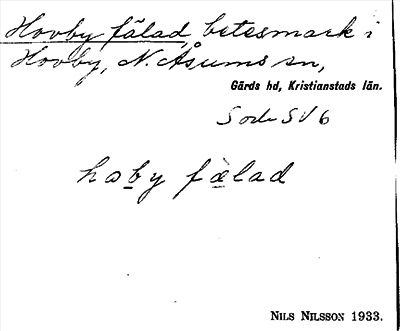 Hovby fälad, betesmark i
Hovby, N. Åsums sn,
Gärds hd, Kristianstads län.
SV 6
hoby fælad
NILS NILSSON 1933.